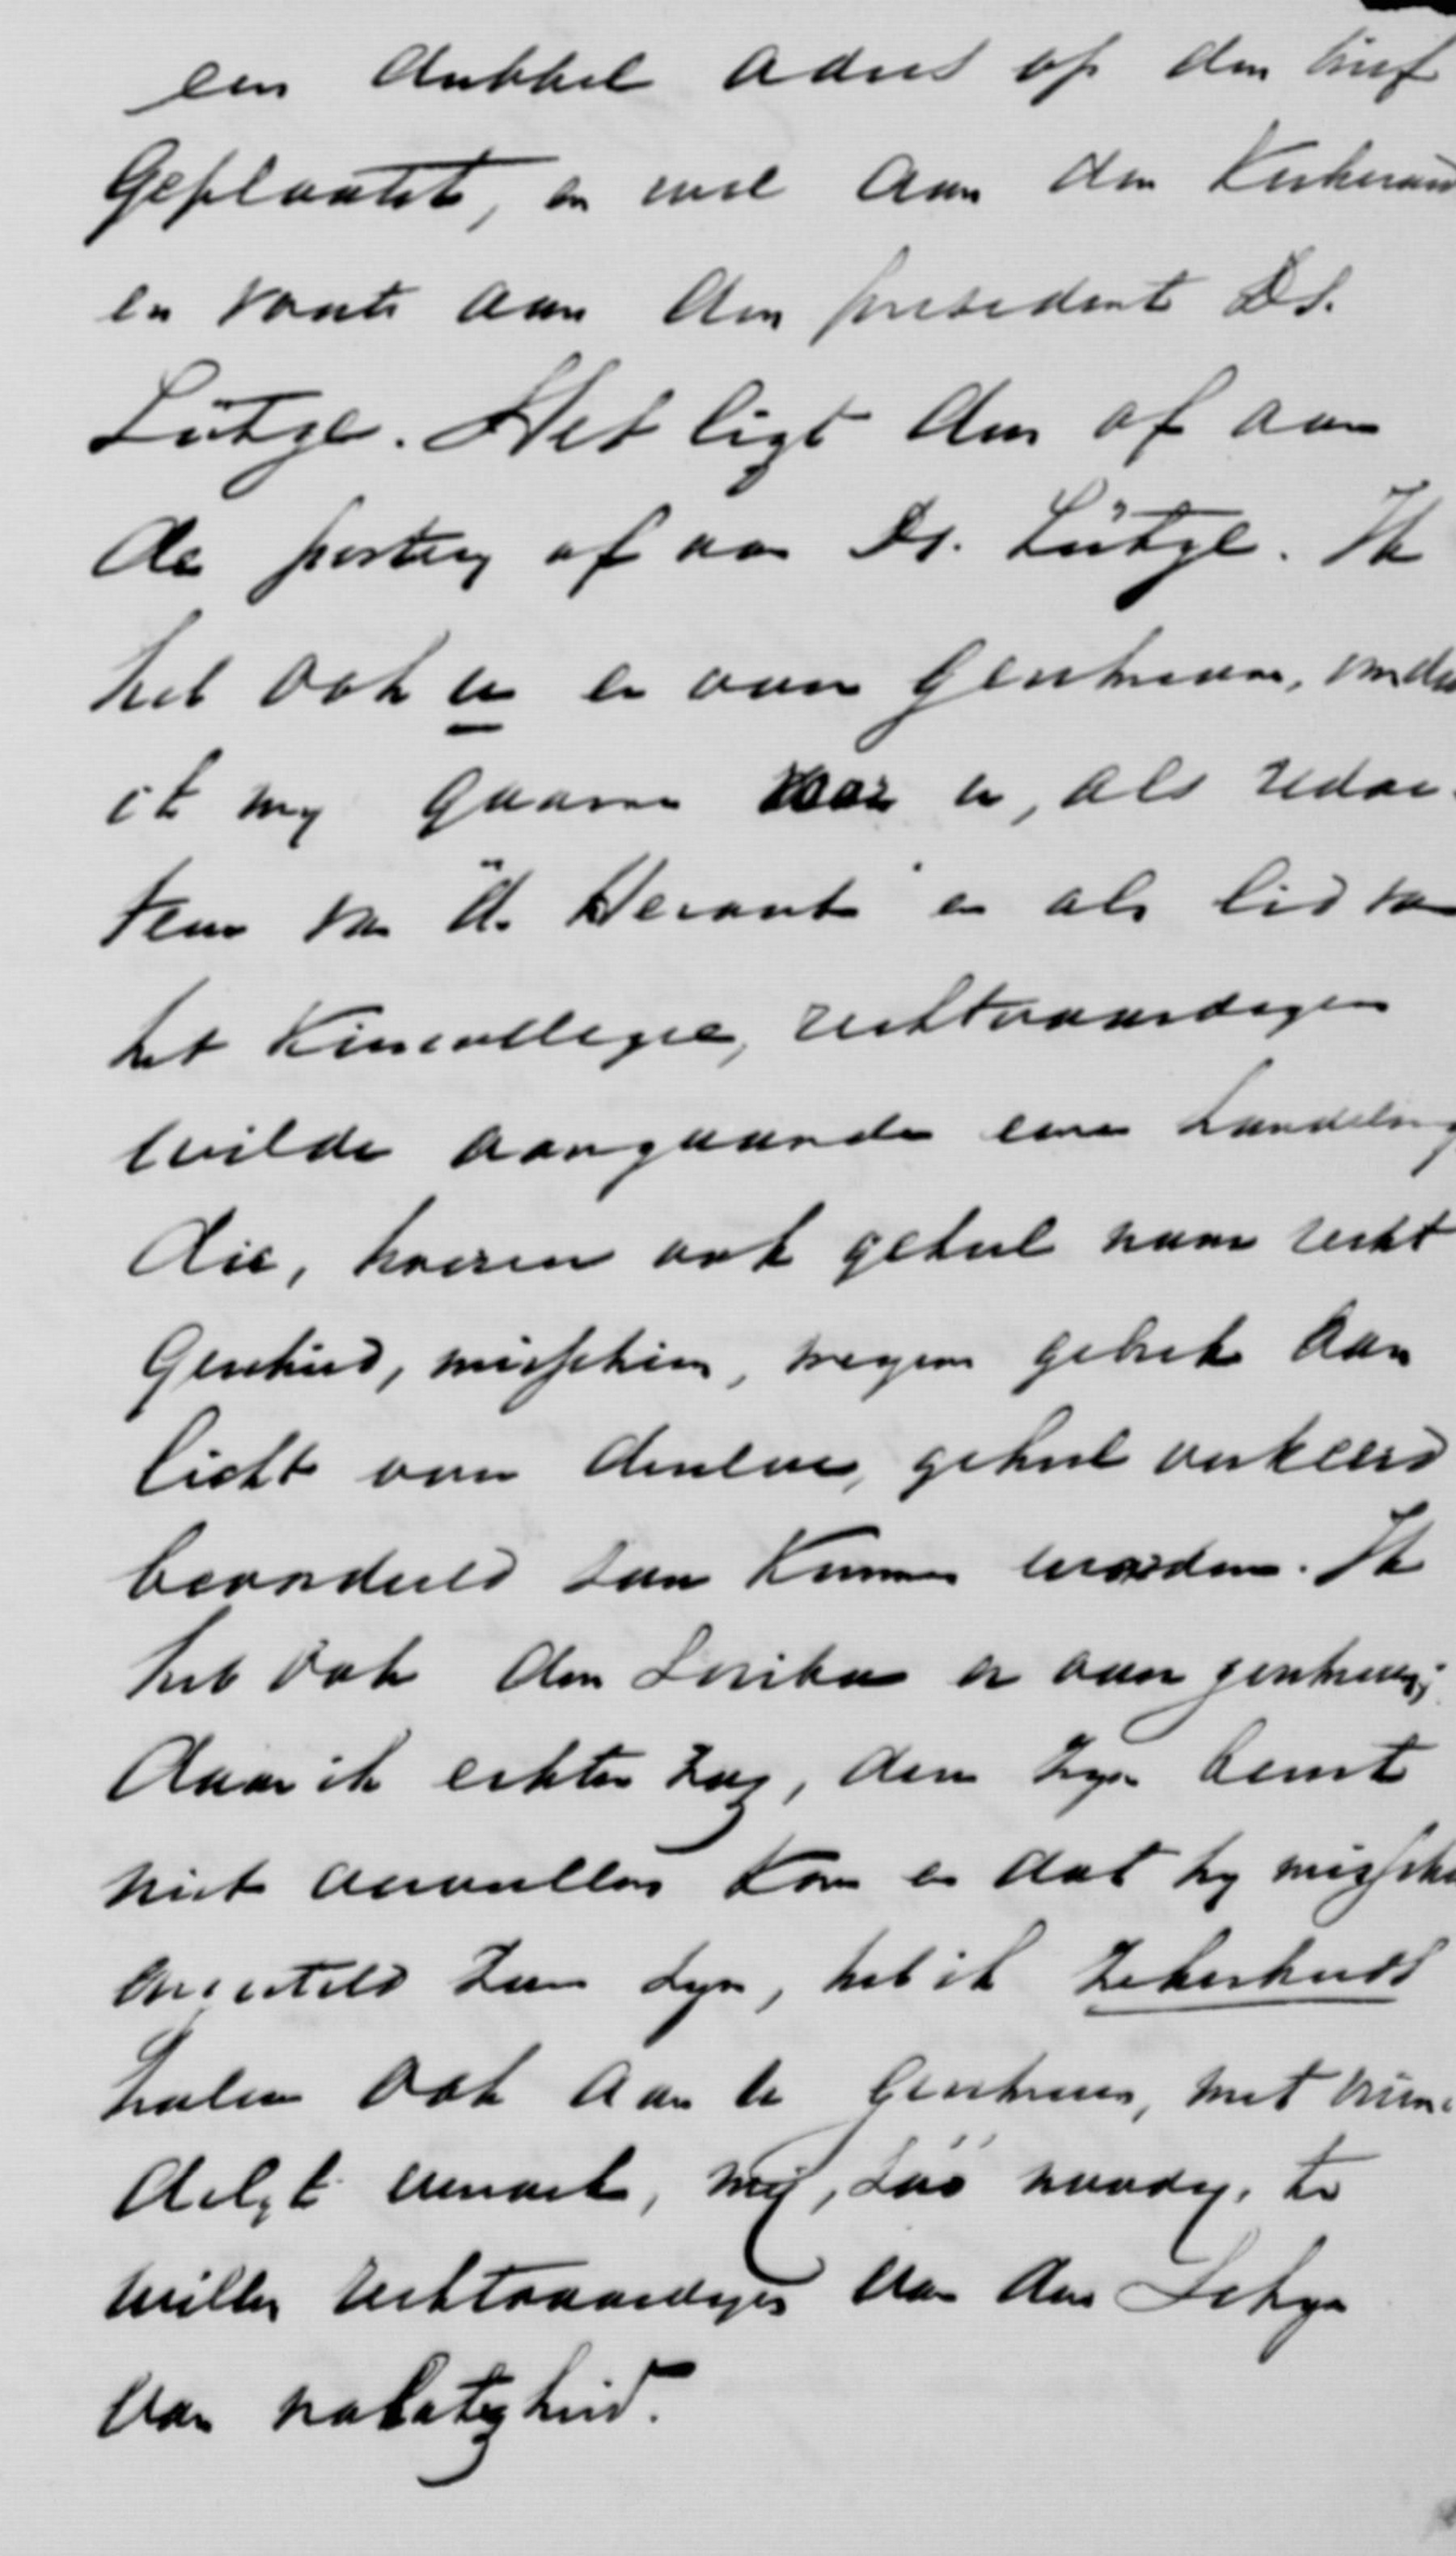 een dubbel adres op den brief
Geplaatst, en wel aan den Kerkeraad
en voorts aan den president Ds.
Lütge. Het ligt dus of aan
de postery of aan Ds. Lütge. Ik
heb ook u er over geschreven, omdat
ik my gaarne voor u, als redac-
teur van "de Heraut" en als lid van
het Kiescollegie, rechtvaardigen
wilde aangaande eene handeling
die, hoezeer ook geheel naar recht
Geschied, misschien, wegens gebrek aan
licht over dezelve, geheel verkeerd
beoordeeld zou kunnen worden. Ik
heb ook den Scriba er over geschreven;
daar ik echter zag, dien zyn beurt
niet vervullen kon en dat hy misschien
ongesteld zou zyn, heb ik zekerheids
halve ook aan u geschreven, met vrien-
delyk verzoek, mij, zoo noodig, te
willen rechtvaardigen van den schyn
van nalatigheid.